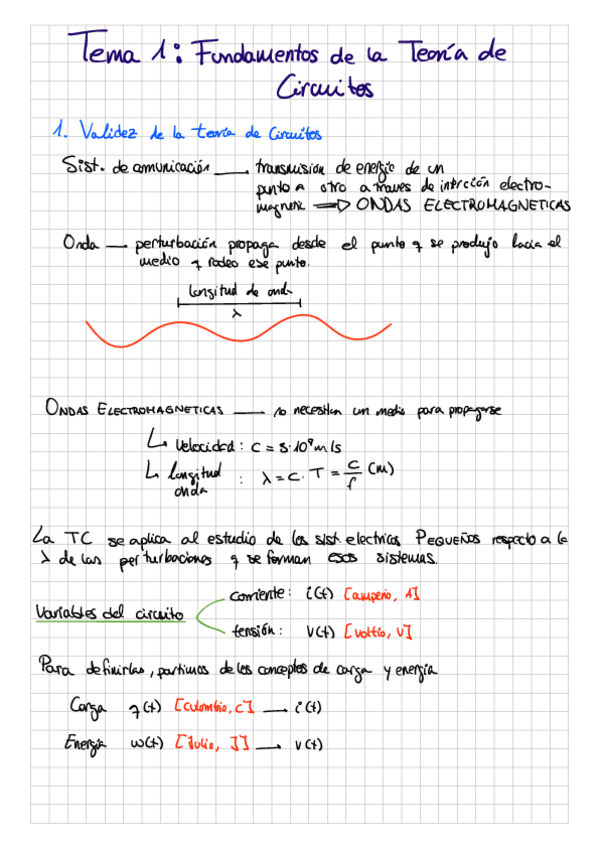 Tema 1: Fundamentos de la Teoría de
Circuitos
1. Validez de la teoría de Circuitos
Sist. de comunicación transmisión de energía de un
punto a otro a traves de intrcción electro-
magnetic ⟹ ONDAS ELECTROMAGNETICAS
Onda — perturbación propaga desde el punto q se produjo hacia el
medio q rodeo ese punto.
longitud de onda
λ
ONDAS ELECTROMAGNETICAS — no necesitan un medio para propagarse
↳ Velocidad: C = 3·10⁸ m/s
↳ longitud onda : λ = C · T = C/f (m)
La TC se aplica al estudio de los sist. electricos PEQUEÑOS respecto a la
λ de las perturbaciones q se forman esos sistemas.
corriente: i(t) [amperio, A]
Variables del circuito
tensión: v(t) [voltio, V]
Para definirlas, partimos de los conceptos de carga y energía
Carga q(t) [Culombio, C] → i(t)
Energía w(t) [Julio, J] → v(t)